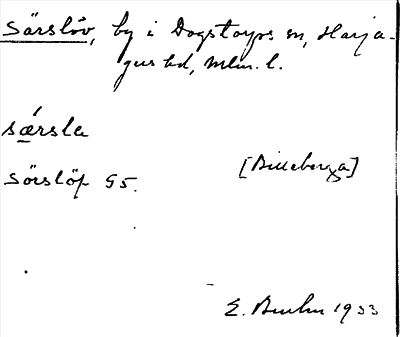 Särslöv, by i Dagstorps sn, Harja-
gers hd, Mlm. l.
sǽrsla
Sörslöf 95.
[Billeberga]
E. 1933